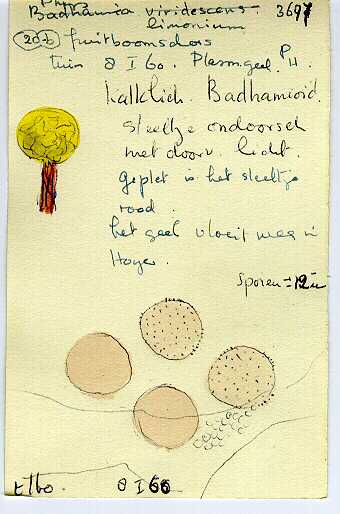 Badhamia viridescens. 3697
limonium
206 fruitboomschors
tuin 8 I 60. Plasm. geel. P.H.
Kalklich. Badhamioid.
steeltje ondoorsch
met doorv. licht.
geplet is het steeltje
rood.
het geel vloeit weg in
Hoyer.
sporen = 12 u
8 I 60